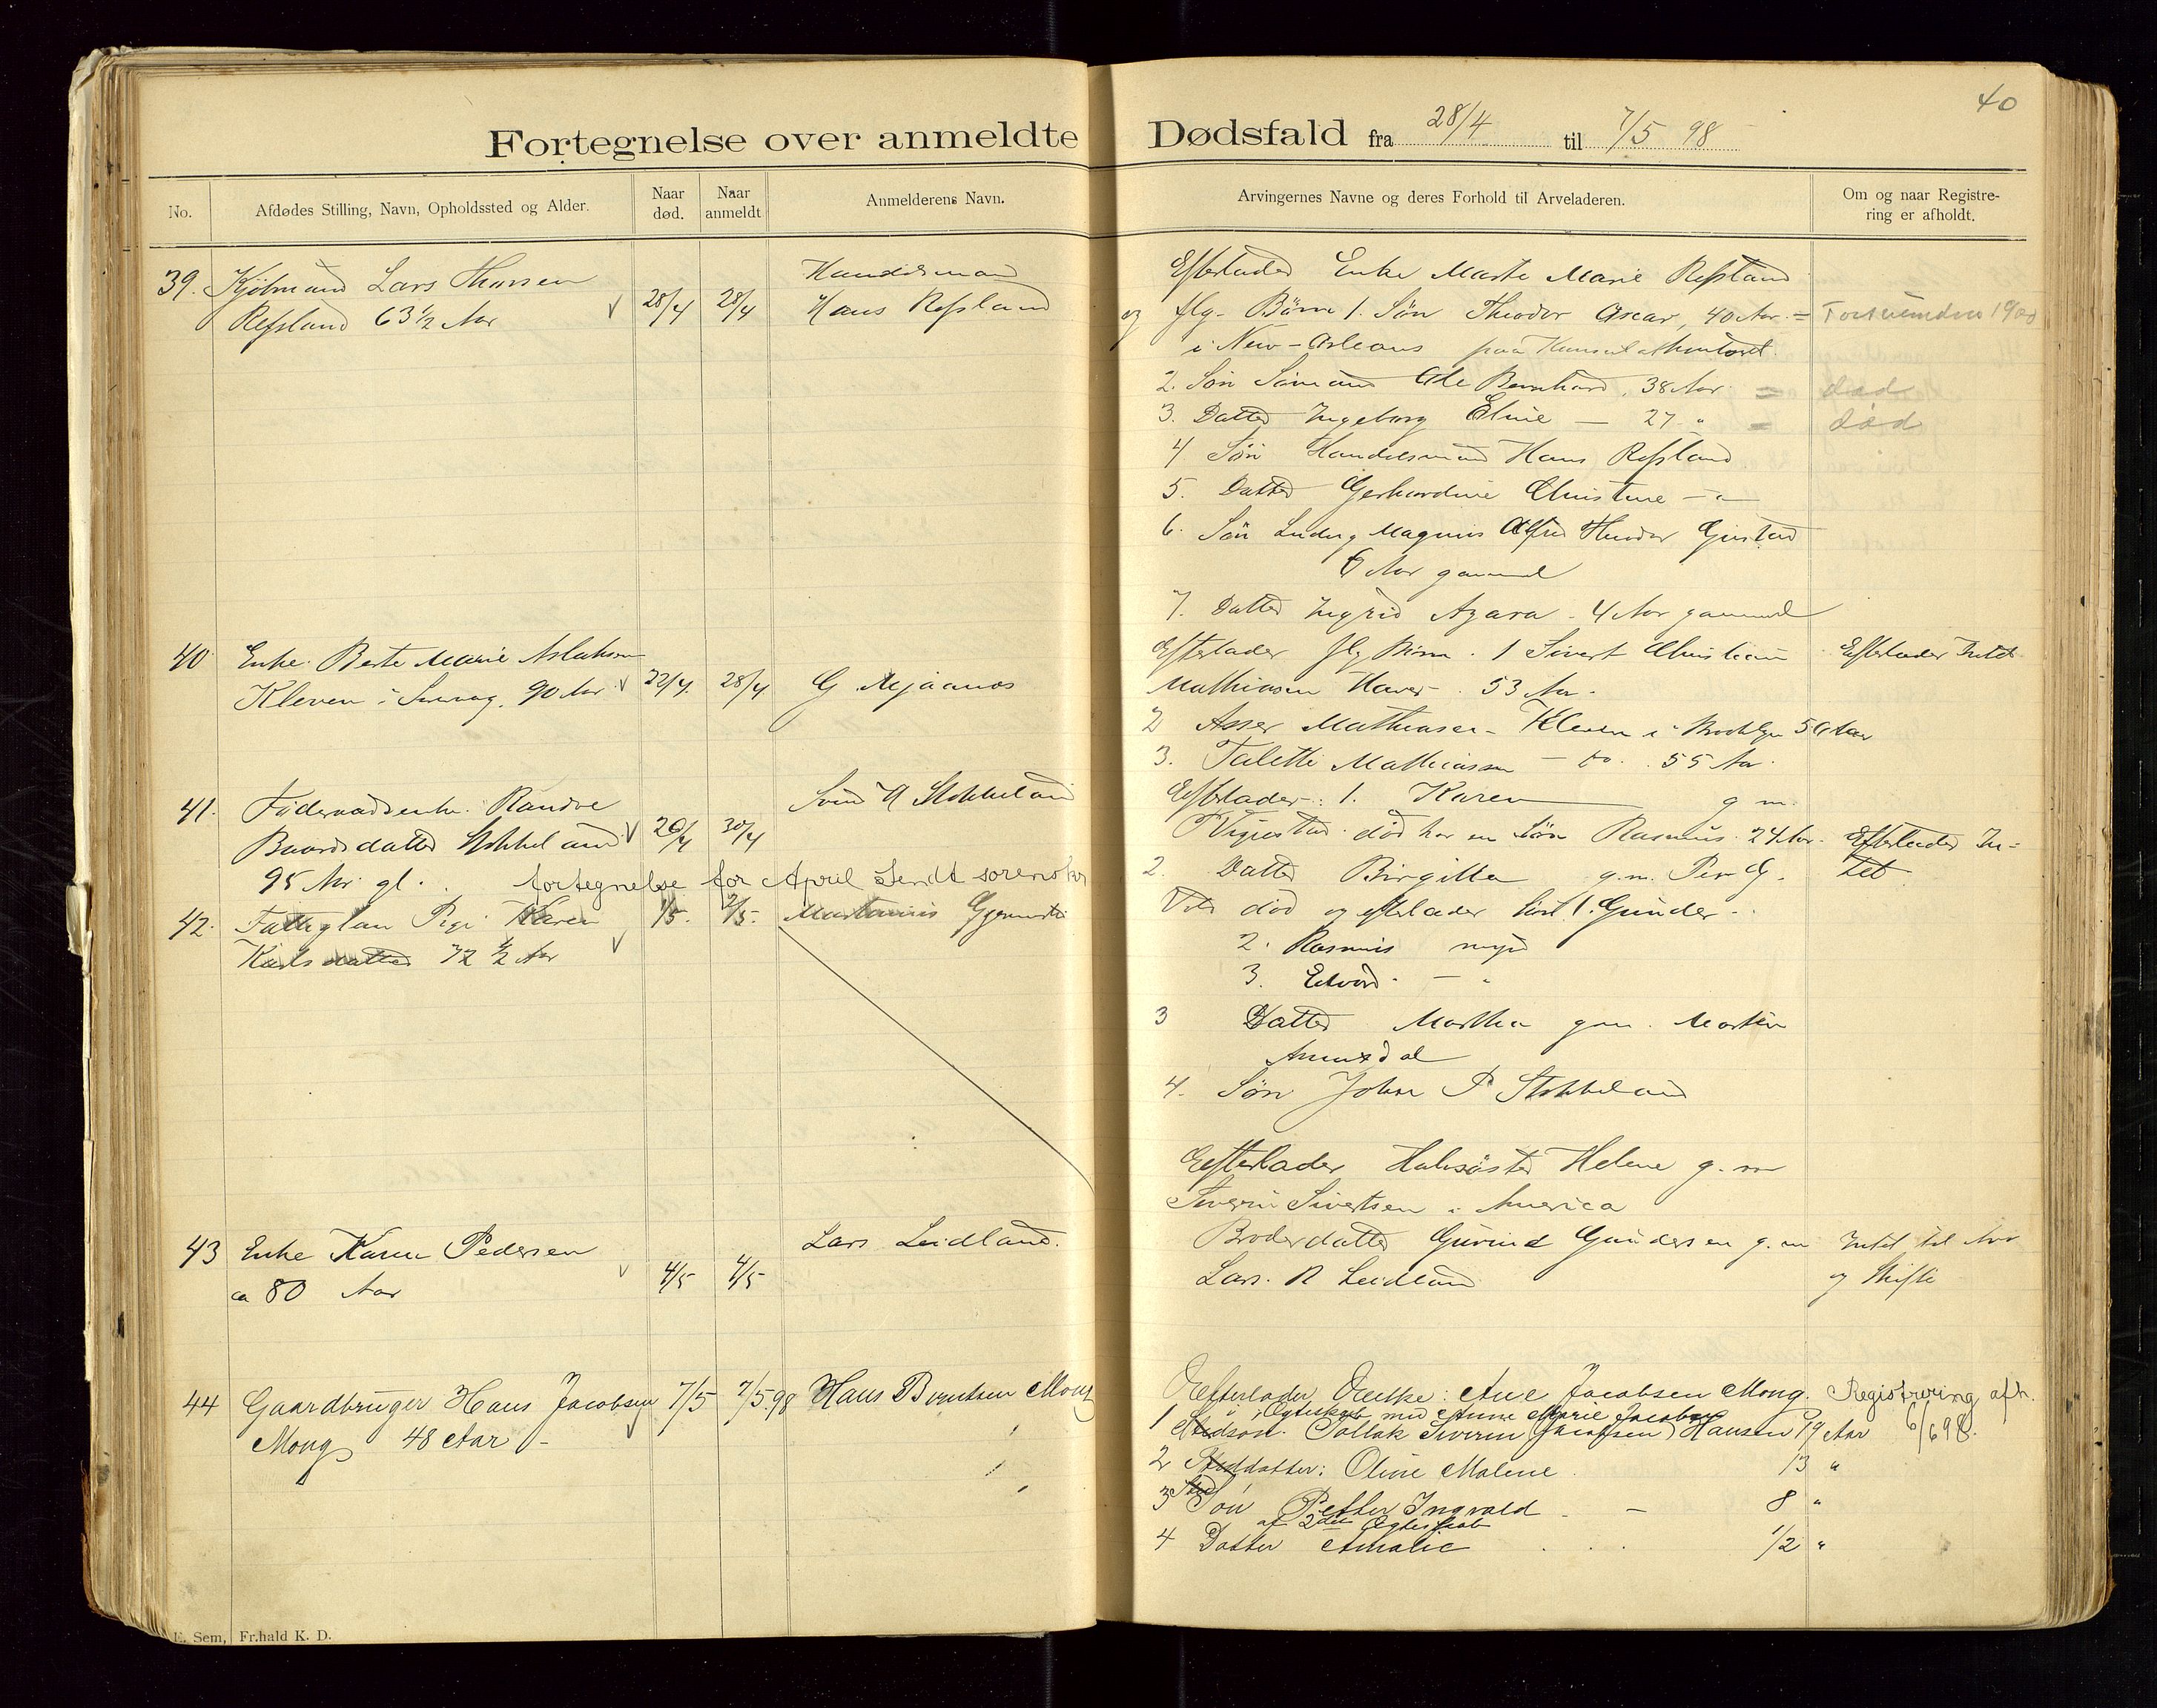 40
Fortegnelse over anmeldte Dødsfald fra 28/4 til 7/5 98
No.
Afdødes Stilling, Navn, Opholdssted og Alder.
Naar død.
Naar anmeldt
Anmelderens Navn.
Arvingernes Navne og deres Forhold til Arveladeren.
Om og naar Registre-
ring er afholdt.
39. Kjøbmand Lars Thorsen
Refsland 63 1/2 Aar
28/4 28/4
Handelsmand
Hans Refsland
Efterlader Enke Marte Marie Refsland
og flg. Börn 1. Sön Theodor Oscar, 40 Aar. =
i New-Orleans paa
2. Sön Sömand Ole Bernhard, 38 Aar = død
3. Datter Ingeborg Eline — 27 " = død
4 Sön Handelsmand Hans Refsland
5. Datter Gerhardine Christine — "
6. Sön Ludvig Magnus Alfred Theodor Gustad
6 Aar gammel
7. Datter Ingrid Azara. 4 Aar gammel
40 Enke Berte Marie Aslaksen
Kleven i Sirevaag. 90 Aar
22/4. 28/4
G. Mjaanes
Efterlader flg Börn. 1 Sivert Christian
Mathiasen Haver. 53 Aar.
2 Asser Mathiasen Kleven i Brooklyn
3. Talette Mathiassen — do. 55 Aar.
Efterlader Intet
41. Föderaadsenke. Randve
Baardsdatter Stokkeland
95 Aar gl.
26/4 30/4
Svend A Stokkeland
Efterlader: 1. Karen g m.
død har en Sön Rasmus. 24 Aar.
2. Datter Birgitta g.m. Per G.
død og efterlader 1. Gunder
2. Rasmus myn
3. Edvard — "
3 Datter Martha gm. Morten
Aamodal
4. Sön Johan P Stokkeland
Efterlader In-
tet
fortegnelse for April Sendt sorenskr
42. Fattiglem Pige Karen
Karlsdatter 72 1/2 Aar
1/5. 2/5.
Efterlader Halvsöster Helene g. m
Severin Sivertsen i America
43 Enke Karen Pedersen
ca 80 Aar
4/5 4/5
Lars Leidland.
Broderdatter Gurind Gundersen g. m
Lars. R Leidland
Intet til Arv
og Skifte
44 Gaardbruger Hans Jacobsen
Mong 48 Aar -
7/5 7/5.98
Hans Berntsen Mong
Efterlader Enke: Ane Jacobsen Mong.
i Ægteskab med Anne Marie Jacobsen
1 Stedson. Tollak Severin (Jacobsen) Hansen 19 Aar
2 Steddatter: Oline Malene 13 "
3 Sted Søn Petter Ingvald — 8 "
af 2det Ægteskab
4 Datter Amalie 1/2 "
Registrering afh.
6/6 98.
E. Sem, Fr.hald K. D.